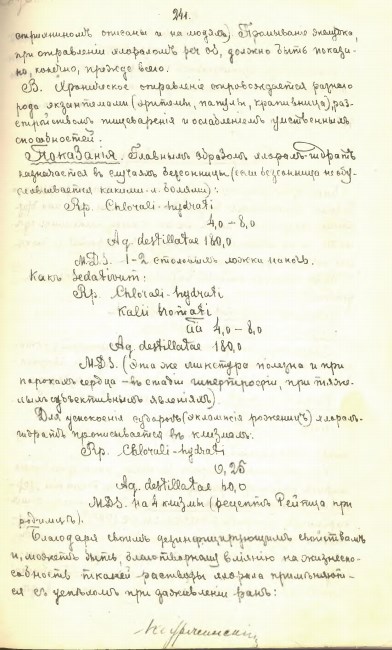 241.
стрихниномъ описаны и на людяхъ) Промыванiе желудка,
при отравленiи хлораломъ per os, должно быть показа-
но, конечно, прежде всего.
В. Хроническое отравленiе сопровождается разнаго
рода экзантемами (эритемы, папулы, крапивница), раз-
стройствомъ пищеваренiя и ослабленiемъ умственныхъ
способностей.
Показанiя. Главнымъ образомъ хлоралъ-гидратъ
назначается въ случаяхъ безсонницы (если безсонница не обу-
словливается какими-л. болями):
Rp. Chlorali-hydrati
4,0–8,0
Aq. destillatae 180,0
M.D.S. 1–2 столовыхъ ложки на ночь.
Какъ Sedativum:
Rp. Chlorali-hydrati
Kalii bromati
āā 4,0–8,0
Aq. destillatae 180,0
M.D.S. (Эта же микстура полезна и при
порокахъ сердца – въ стадiи гипертрофiи, при тяже-
лыхъ субъективныхъ явленiяхъ).
Для успокоенiя судорогъ (эклампсiя роженицъ) хлорал-
гидратъ прописывается въ клизмахъ:
Rp. Chlorali-hydrati
0,25
Aq. destillatae 50,0
MDS. на 4 клизмы (рецептъ при
родимцѣ).
Благодаря своимъ дезинфицирующимъ свойствамъ
и, можетъ быть, благотворному влiянiю на жизнеспо-
собность тканей – растворы хлорала примѣняют-
ся съ успѣхомъ при заживленiи ранъ: